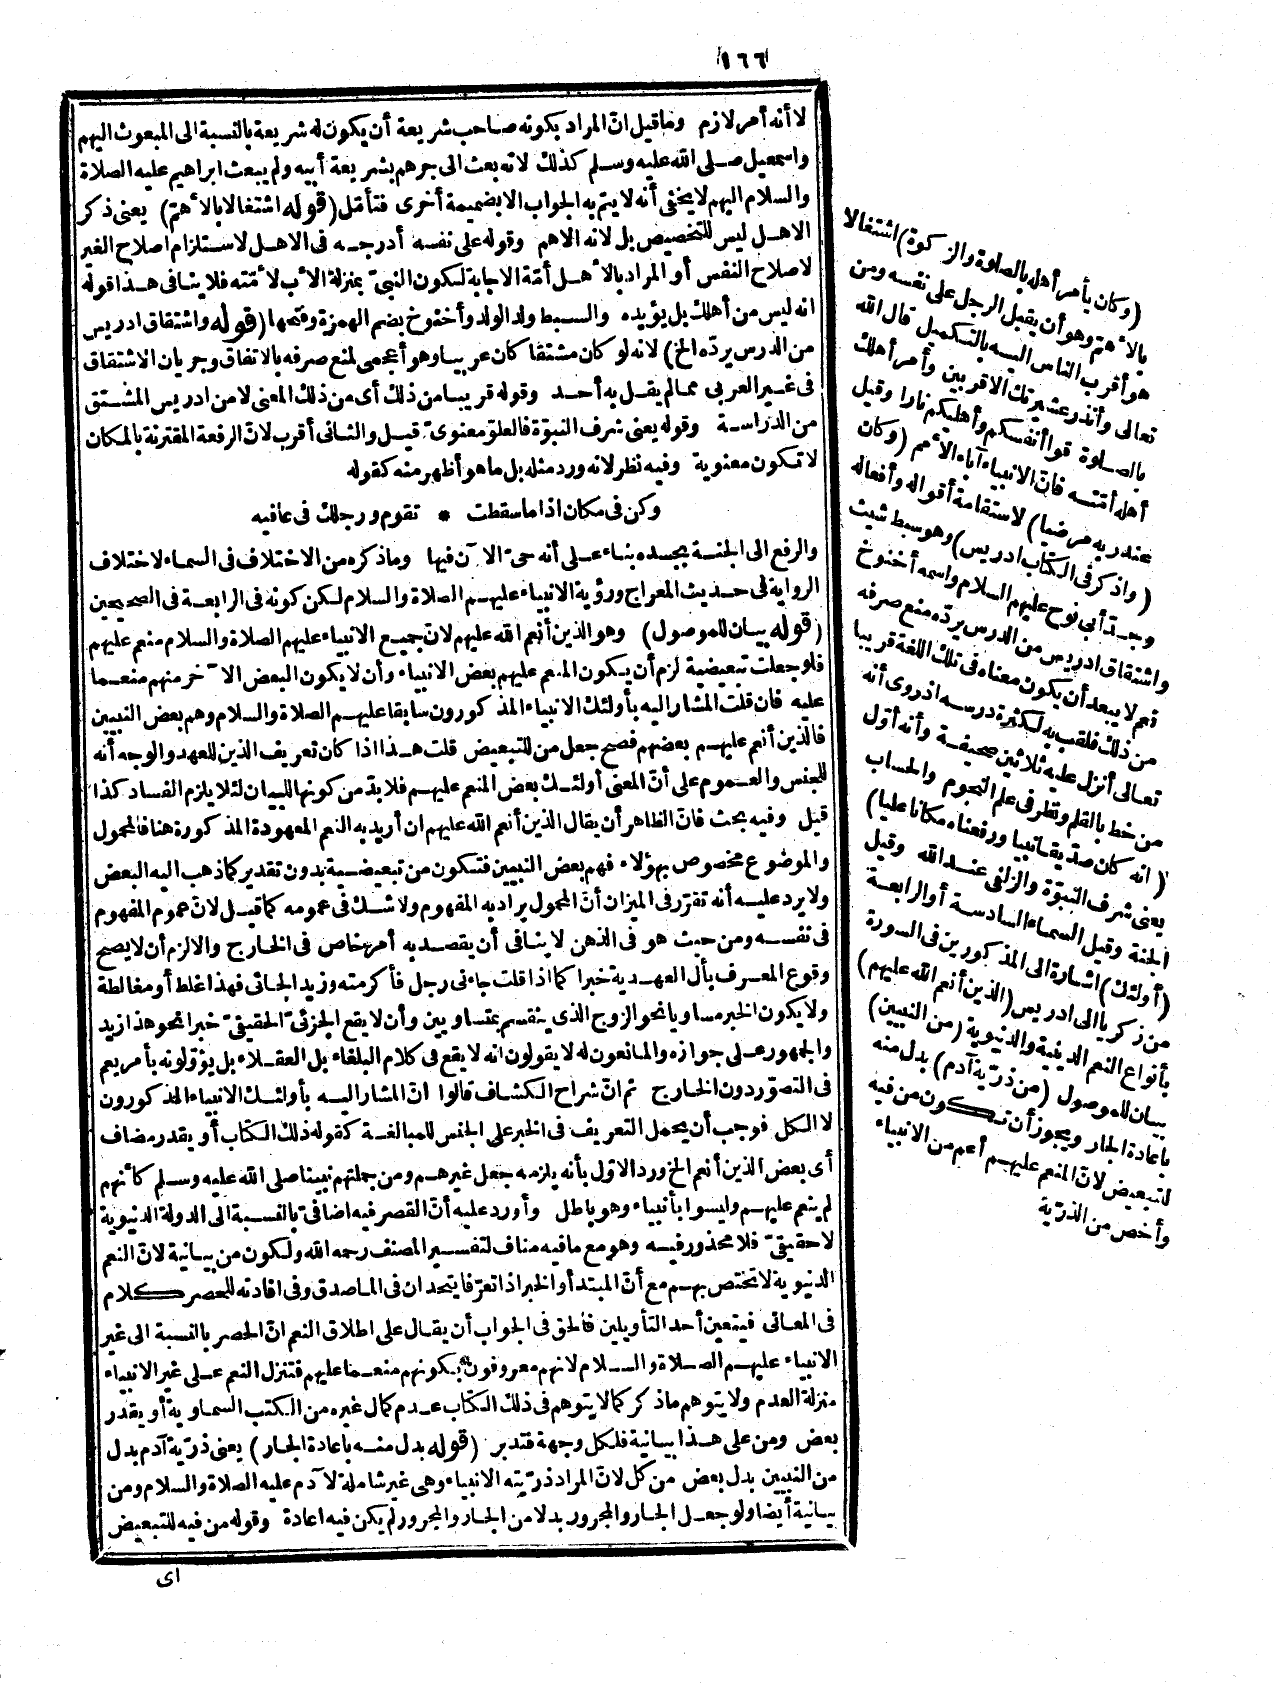 ١٦٦
لا أنه أمر لازم وما قيل انّ المراد بكونه صاحب شريعة أن يكون له شريعة بالنسبة الى المبعوث اليهم
واسمعيل صلى الله عليه وسلم كذلك لانه بعث الى جرهم بشريعة أبيه ولم يبعث ابراهيم عليه الصلاة
والسلام اليهم لا يخفى أنه لا يتم به الجواب الا بضميمة أخرى فتأمّل (قوله اشتغالا بالأهمّ) يعنى ذكر
الاهل ليس للتخصيص بل لانه الاهم وقوله على نفسه أدرجه فى الاهل لاستلزام اصلاح الغير
لاصلاح النفس أو المراد بالأهل أمّة الاجابة لكون النبىّ بمنزلة الأب لأمّته فلا ينافى هذا قوله
انه ليس من أهلك بل يؤيده والسبط ولد الولد وأخنوخ بضم الهمزة وفتحها (قوله واشتقاق ادريس
من الدرس يردّه الخ) لانه لو كان مشتقا كان عربيا وهو أعجمى لمنع صرفه بالاتفاق وجريان الاشتقاق
فى غير العربى مما لم يقل به أحد وقوله قريبا من ذلك أى من ذلك المعنى لا من ادريس المشتق
من الدّراسة وقوله يعنى شرف النبوّة فالعلوّ معنوىّ قيل والثانى أقرب لانّ الرفعة المقترنة بالمكان
لا تكون معنوية وفيه نظر لانه ورد مثله بل ما هو أظهر منه كقوله
وكن فى مكان اذا ما سقطت * تقوم ورجلك فى عافيه
والرفع الى الجنة بجسده بناء على أنه حىّ الآن فيها وما ذكره من الاختلاف فى السماء لاختلاف
الرواية فى حديث المعراج ورؤية الانبياء عليهم الصلاة والسلام لكن كونه فى الرابعة فى الصحيحين
(قوله بيان للموصول) وهو الذين أنعم الله عليهم لانّ جميع الانبياء عليهم الصلاة والسلام منعم عليهم
فلو جعلت تبعيضية لزم أن يكون المنعم عليهم بعض الانبياء وأن لا يكون البعض الآخر منهم منعما
عليه فان قلت المشار اليه بأولئك الانبياء المذكورون سابقا عليهم الصلاة والسلام وهم بعض النبيين
فالذين أنعم عليهم بعضهم فصح جعل من للتبعيض قلت هذا اذا كان تعريف الذين للعهد والوجه أنه
للجنس والعموم على أنّ المعنى أولئك بعض المنعم عليهم فلا بدّ من كونها للبيان لئلا يلزم الفساد كذا
قيل وفيه بحث فانّ الظاهر أن يقال الذين أنعم الله عليهم ان أريد به النعم المعهودة المذكورة هنا فالمحمول
والموضوع مخصوص بهؤلاء فهم بعض النبيين فتكون من تبعيضية بدون تقدير كما ذهب اليه البعض
ولا يرد عليه أنه تقرّر فى الميزان أنّ المحمول يراد به المفهوم ولا شك فى عمومه كما قيل لانّ عموم المفهوم
فى نفسه ومن حيث هو فى الذهن لا ينافى أن يقصد به أمر خاص فى الخارج والا لزم أن لا يصح
وقوع المعرف بأل العهدية خبرا كما اذا قلت جاءنى رجل فأكرمته وزيد الجائى فهذا غلط أو مغالطة
ولا يكون الخبر مساويا نحو الزوج الذى ينقسم بمتساويين وأن لا يقع الجزئىّ الحقيقىّ خبرا نحو هذا زيد
والجمهور على جوازه والمانعون له لا يقولون انه لا يقع فى كلام البلغاء بل العقلاء بل يؤوّلونه بأمر يعم
فى التصوّر دون الخارج ثم انّ شراح الكشاف قالوا انّ المشار اليه بأولئك الانبياء المذكورون
لا الكل فوجب أن يحمل التعريف فى الخبر على الجنس للمبالغة كقوله ذلك الكتاب أو يقدر مضاف
أى بعض الذين أنعم الخ ورد الاوّل بأنه يلزمه جعل غيرهم ومن جملتهم نبينا صلى الله عليه وسلم كأنهم
لم ينعم عليهم وليسوا بأنبياء وهو باطل وأورد عليه أنّ القصر فيه اضافىّ بالنسبة الى الدولة الدنيوية
لا حقيقىّ فلا محذور فيه وهو مع ما فيه مناف لتفسير المصنف رحمه الله ولكون من بيانية لانّ النعم
الدنيوية لا تختص بهم مع أنّ المبتدأ والخبر اذا تعرّفا يتحدان فى الماصدق وفى افادته للحصر كلام
فى المعانى فيتعين أحد التأويلين فالحق فى الجواب أن يقال على اطلاق النعم انّ الحصر بالنسبة الى غير
الانبياء عليهم الصلاة والسلام لانهم معروفون بكونهم منعما عليهم فتنزل النعم على غير الانبياء
منزلة العدم ولا يتوهم ما ذكر كما لا يتوهم فى ذلك الكتاب عدم كمال غيره من الكتب السماوية أو يقدر
بعض ومن على هذا بيانية فلكل وجهة فتدبر (قوله بدل منه باعادة الجار) يعنى ذرّية آدم بدل
من النبيين بدل بعض من كل لانّ المراد ذرّيته الانبياء وهى غير شاملة لآدم عليه الصلاة والسلام ومن
بيانية أيضا ولو جعل الجار والمجرور بدلا من الجار والمجرور لم يكن فيه اعادة وقوله من فيه للتبعيض
اى
(وكان يأمر أهله بالصلوة والزكوة) اشتغالا
بالأهمّ وهو أن يقبل الرجل على نفسه ومن
هو أقرب الناس اليه بالتكميل قال الله
تعالى وأنذر عشيرتك الاقربين وأمر أهلك
بالصلوة قوا أنفسكم وأهليكم نارا وقيل
أهله أمّته فانّ الانبياء آباء الأمم (وكان
عند ربه مرضيا) لاستقامة أقواله وأفعاله
(واذكر فى الكتاب ادريس) وهو سبط شيث
وجدّ أبى نوح عليهم السلام واسمه أخنوخ
واشتقاق ادريس من الدرس يردّه منع صرفه
نعم لا يبعد أن يكون معناه فى تلك اللغة قريبا
من ذلك فلقب به لكثرة درسه اذ روى أنه
تعالى أنزل عليه ثلاثين صحيفة وأنه أوّل
من خط بالقلم ونظر فى علم النجوم والحساب
(انه كان صدّيقا نبيا ورفعناه مكانا عليا)
يعنى شرف النبوّة والزلفى عند الله وقيل
الجنة وقيل السماء السادسة أو الرابعة
(أولئك) اشارة الى المذكورين فى السورة
من زكريا الى ادريس (الذين أنعم الله عليهم)
بأنواع النعم الدينية والدنيوية (من النبيين)
بيان للموصول (من ذرّية آدم) بدل منه
باعادة الجار ويجوز أن تكون من فيه
للتبعيض لانّ المنعم عليهم أعم من الانبياء
وأخص من الذرّية